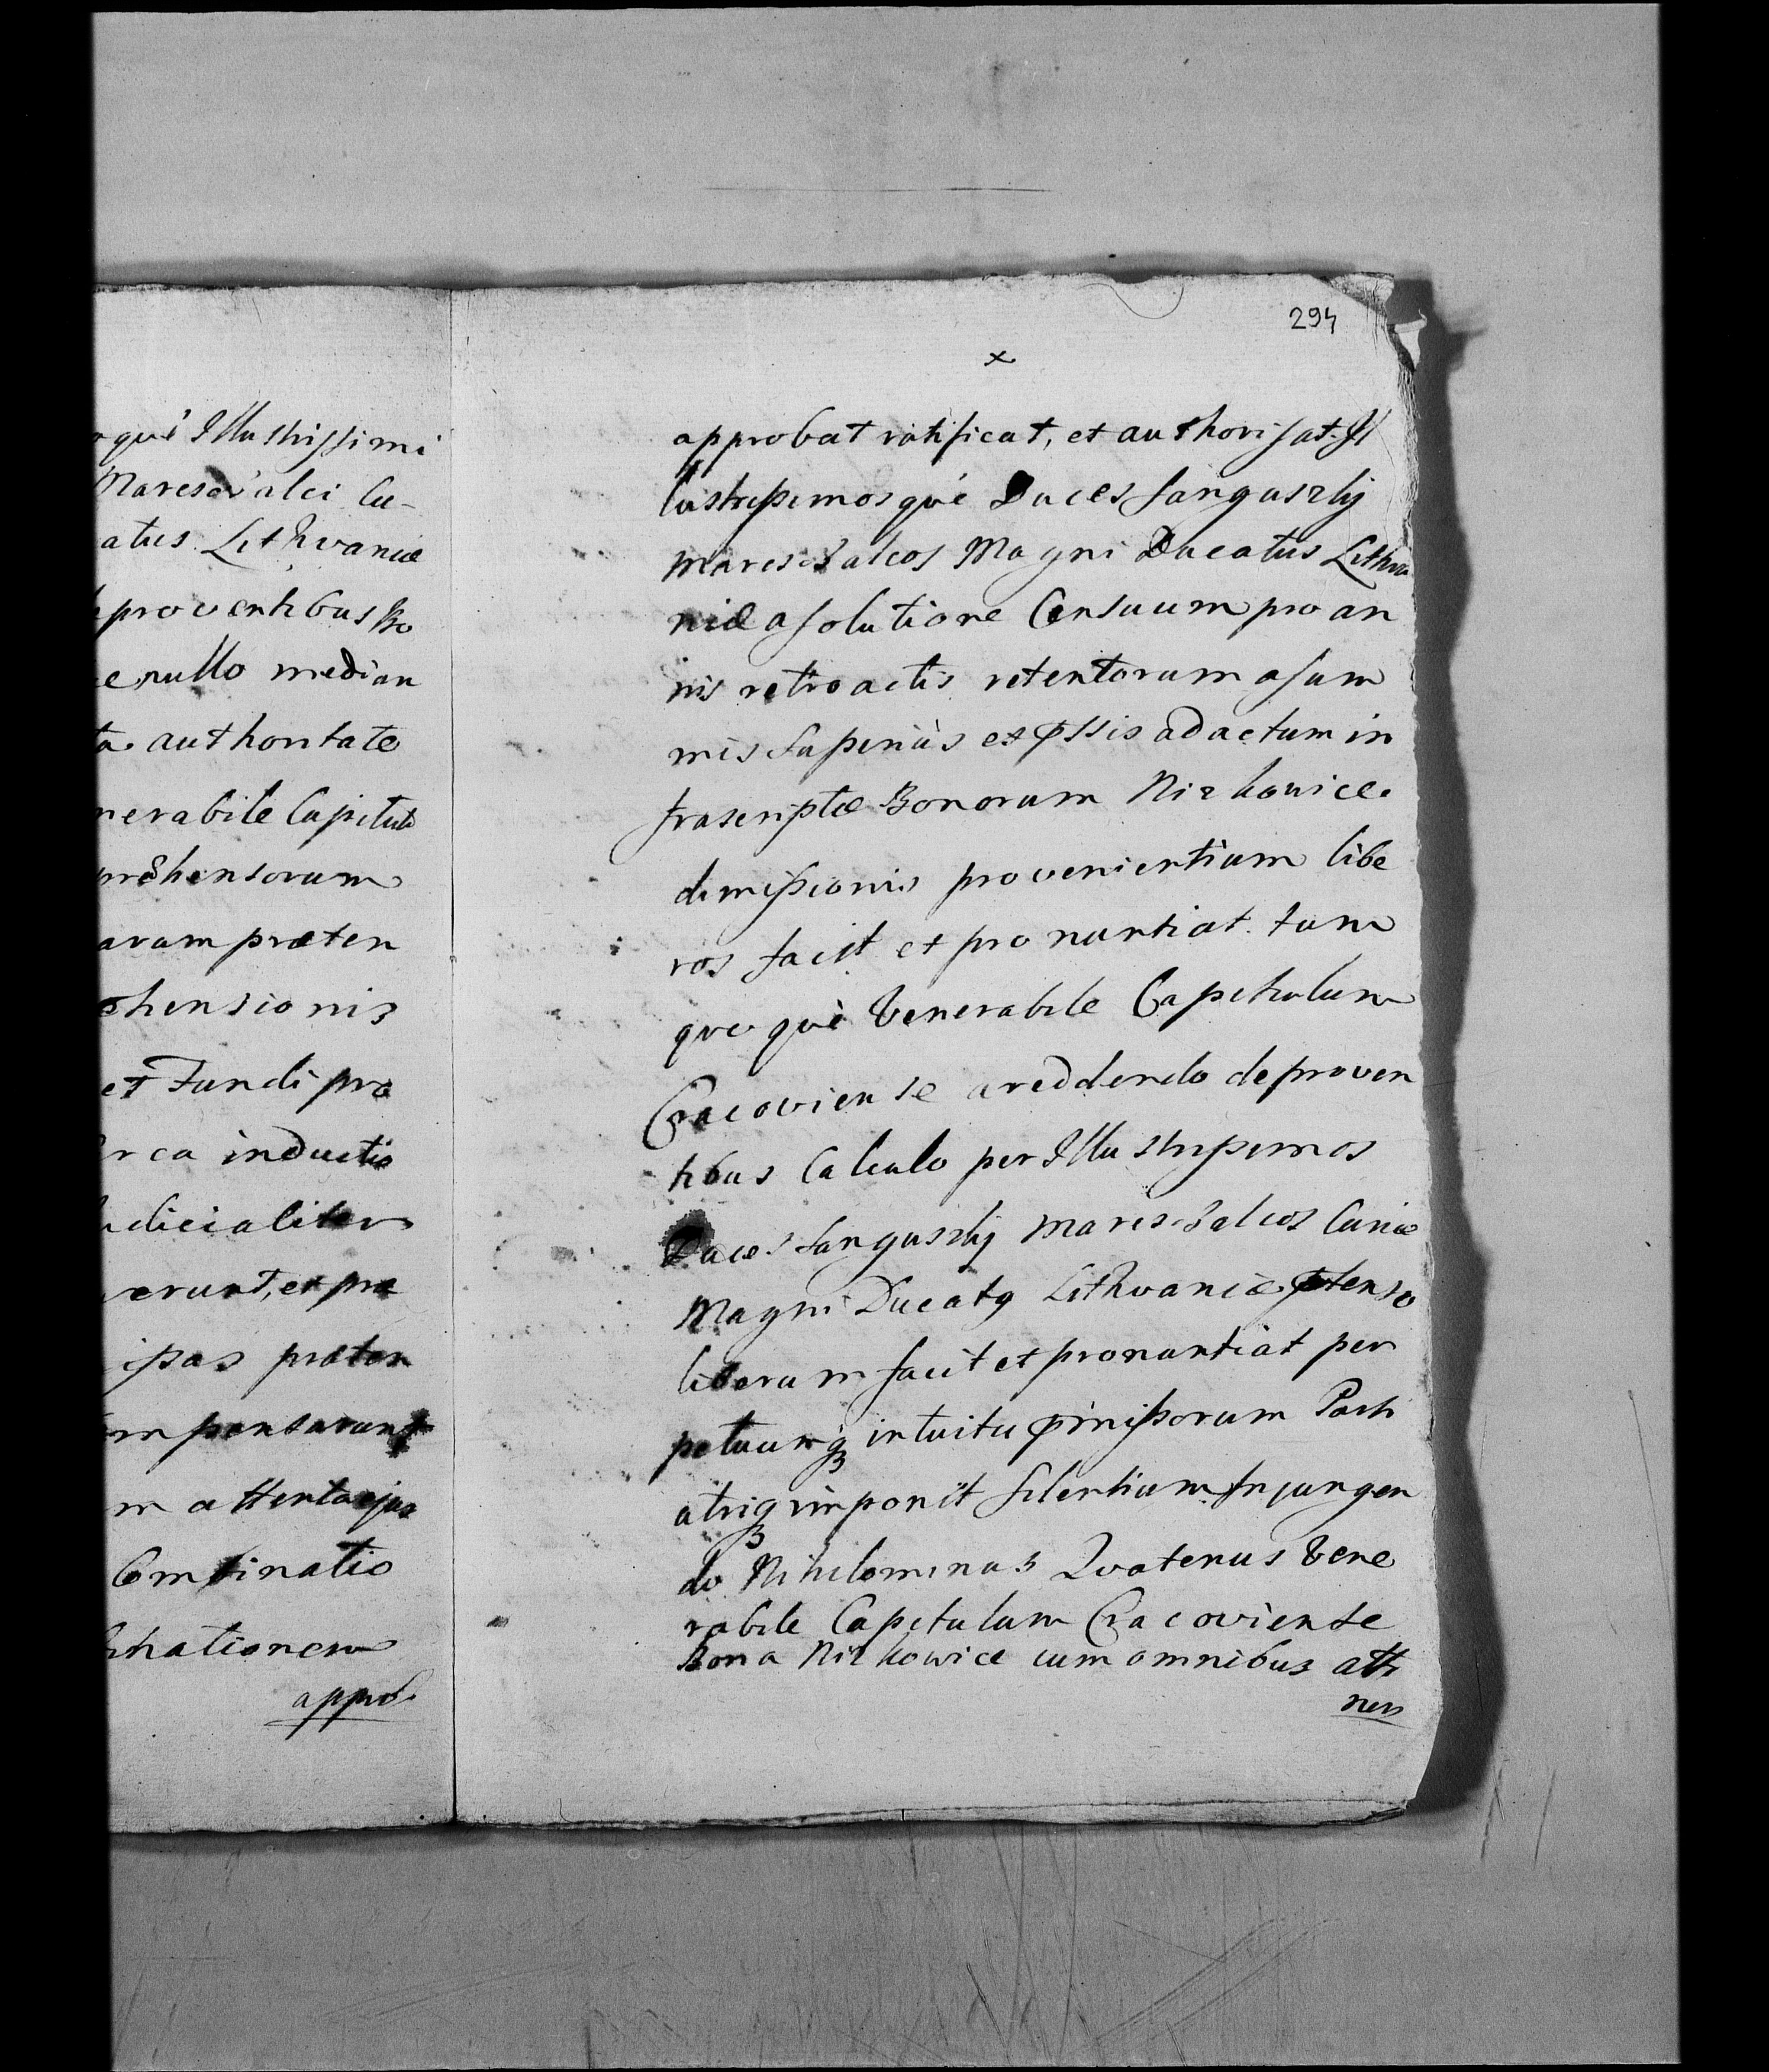 què Illustrissimi
Mareschalci Cu-
atus Lithvaniæ
proventibus Bo
e nullo median
ta authoritate
nerabile Capitulu
prehensorum
arum præten
ehensionis
et Fundi pro
rca inductio
udicialiter
verunt, et præ
ipsas præten
mpensarunt
m attenta ejus
Combinatio
binationem
appro
294
x
approbat ratificat, et authorisat. Il
lustrissimosquè Duces Sanguszkij
Mareschalcos Magni Ducatus Lithva
niæ a solutione Censuum pro an
nis retroactis retentorum a sum
mis superiùs expssis ad actum in
frascriptæ Bonorum Nizkowice
dimissionis provenientium libe
ros facit et pronuntiat. tum
quoquè Venerabile Capitulum
Cracoviense a reddendo de proven
tibus Calculo per Illustrissimos
Duces Sanguszkij Mareschalcos Curiæ
Magni Ducatq Lithvaniæ ptenso
liberum facit et pronuntiat per
petuumq3 intuitu pmissorum Parti
utriq3 imponit silentium Injungen
do Nihilominus Quatenus Vene
rabile Capitulum Cracoviense
Bona Nizkowice cum omnibus atti
nen